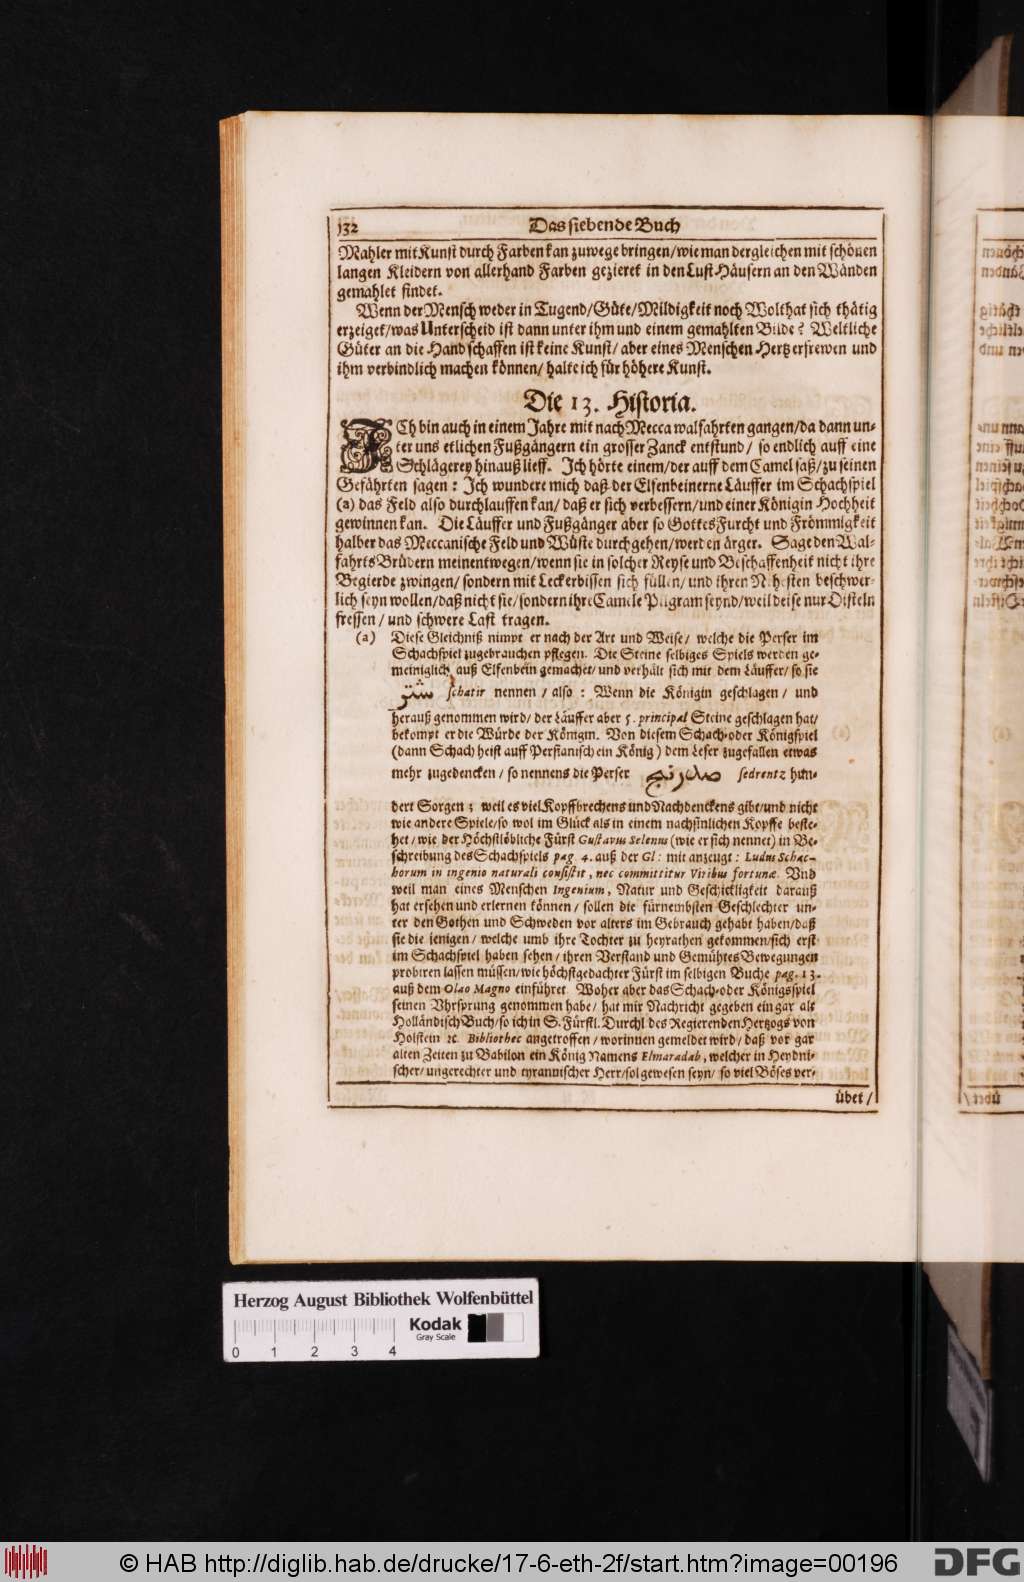 132 Das siebende Buch
Mahler mit Kunst durch Farben kan zuwege bringen/ wie man dergleichen mit schönen
langen Kleidern von allerhand Farben gezieret in den Lust Häusern an den Wänden
gemahlet findet.
Wenn der Mensch weder in Tugend/ Güte/ Mildigkeit noch Wolthat sich thätig
erzeiget/ was Unterscheid ist dann unter ihm und einem gemahlten Bilde? Weltliche
Güter an die Hand schaffen ist keine Kunst/ aber eines Menschen Hertz erfrewen und
ihm verbindlich machen können/ halte ich für höhere Kunst.
Die 13. Historia.
ICh bin auch in einem Jahre mit nach Mecca walfahrten gangen/ da dann un-
ter uns etlichen Fußgängern ein grosser Zanck entstund/ so endlich auff eine
Schlägerey hinauß lieff. Ich hörte einem/ der auff dem Camel saß/ zu seinen
Gefährten sagen: Ich wundere mich daß der Elfenbeinerne Läuffer im Schachspiel
(a) das Feld also durchlauffen kan/ daß er sich verbessern/ und einer Königin Hochheit
gewinnen kan. Die Läuffer und Fußgänger aber so Gottes Furcht und Frömmigkeit
halber das Meccanische Feld und Wüste durchgehen/ werden ärger. Sage den Wal-
fahrts Brüdern meinentwegen/ wenn sie in solcher Reyse und Beschaffenheit nicht ihre
Begierde zwingen/ sondern mit Leckerbissen sich füllen/ und ihren Nehesten beschwer-
lich seyn wollen/ daß nicht sie/ sondern ihre Camele Pilgram seynd/ weil deise nur Disteln
fressen/ und schwere Last tragen.
(a) Diese Gleichniß nimpt er nach der Art und Weise/ welche die Perser im
Schachspiel zugebrauchen pflegen. Die Steine selbiges Spiels werden ge-
meiniglich auß Elfenbein gemachet/ und verhält sich mit dem Läuffer/ so sie
شتر schatir nennen/ also: Wenn die Königin geschlagen/ und
herauß genommen wird/ der Läuffer aber 5. principal Steine geschlagen hat/
bekompt er die Würde der Königin. Von diesem Schach- oder Königspiel
(dann Schach heist auff Persianisch ein König) dem Leser zugefallen etwas
mehr zugedencken/ so nennens die Perser صدرنج sedrentz hun-
dert Sorgen; weil es viel Kopffbrechens und Nachdenckens gibt/ und nicht
wie andere Spiele/ so wol im Glück als in einem nachsinlichen Kopffe beste-
het/ wie der Höchstlöbliche Fürst Gustavus Selenus (wie er sich nennet) in Be-
schreibung des Schachspiels pag. 4. auß der Gl: mit anzeugt: Ludus Schac-
horum in ingenio naturali consistit, nec committitur Viribus fortunæ. Und
weil man eines Menschen Ingenium, Natur und Geschickligkeit darauß
hat ersehen und erlernen können/ sollen die fürnembsten Geschlechter un-
ter den Gothen und Schweden vor alters im Gebrauch gehabt haben/ daß
sie die jenigen/ welche umb ihre Tochter zu heyrathen gekommen/ sich erst
im Schachspiel haben sehen/ ihren Verstand und Gemühtes Bewegungen
probiren lassen müssen/ wie höchstgedachter Fürst im selbigen Buche pag. 13.
auß dem Olao Magno einführet. Woher aber das Schach- oder Königsspiel
seinen Uhrsprung genommen habe/ hat mir Nachricht gegeben ein gar alt
Holländisch Buch/ so ich in S. Fürstl. Durchl. des Regierenden Hertzogs von
Holstein ꝛc. Bibliothec angetroffen/ worinnen gemeldet wird/ daß vor gar
alten Zeiten zu Babilon ein König Namens Elmaradab, welcher in Heydni-
scher/ ungerechter und tyrannischer Herr/ sol gewesen seyn/ so viel Böses ver-
übet/
Herzog August Bibliothek Wolfenbüttel
Kodak
Gray Scale
0 1 2 3 4
© HAB http://diglib.hab.de/drucke/17-6-eth-2f/start.htm?image=00196
DFG